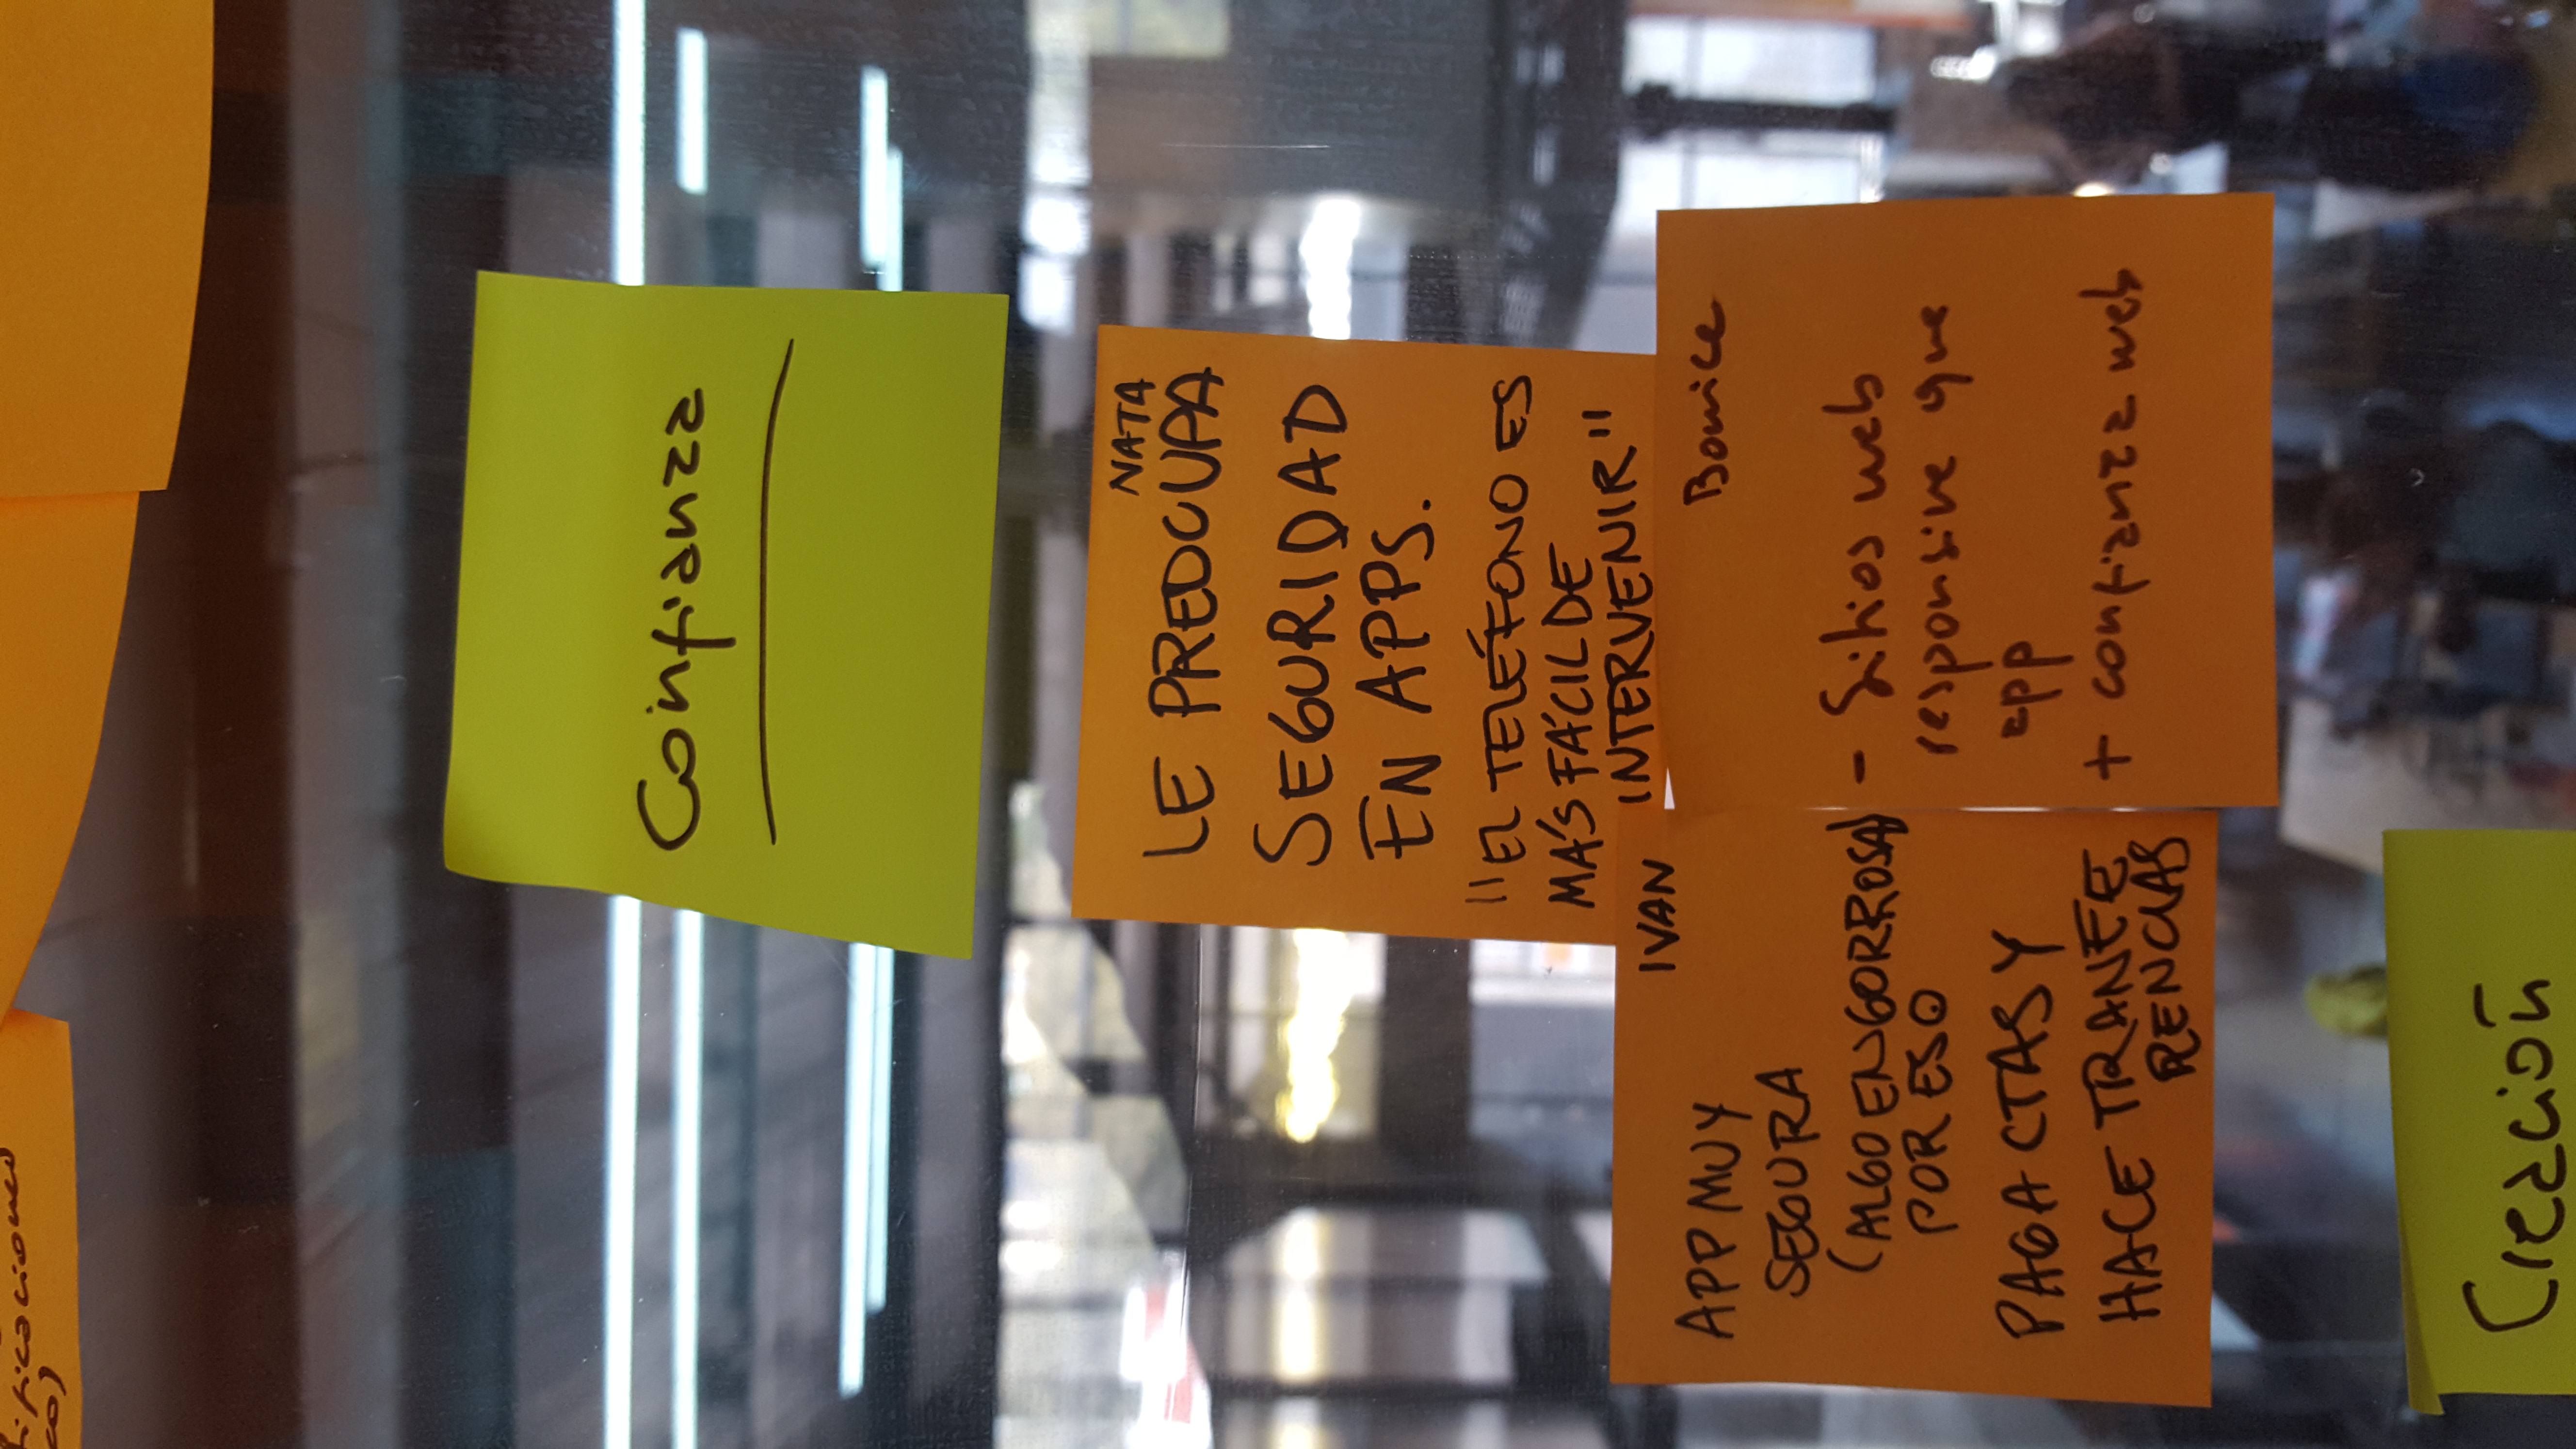 co)
Confianza
NATA
LE PREOCUPA
SEGURIDAD
EN APPS.
"EL TELÉFONO ES
MÁS FÁCIL DE
INTERVENIR"
IVAN
APP MUY
SEGURA
(ALGO ENGORROSA)
POR ESO
PAGA CTAS Y
HACE TRANFE
RENCIAS
- Sitios web
responsive que
app
+ confianza web
Creación